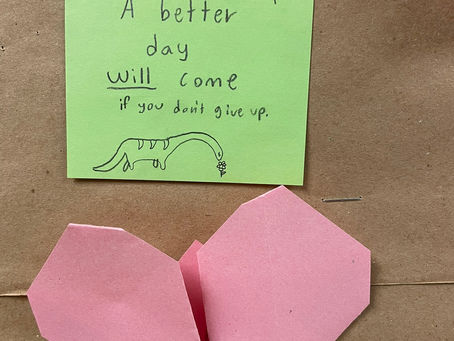 A better
day
will come
if you don't give up.